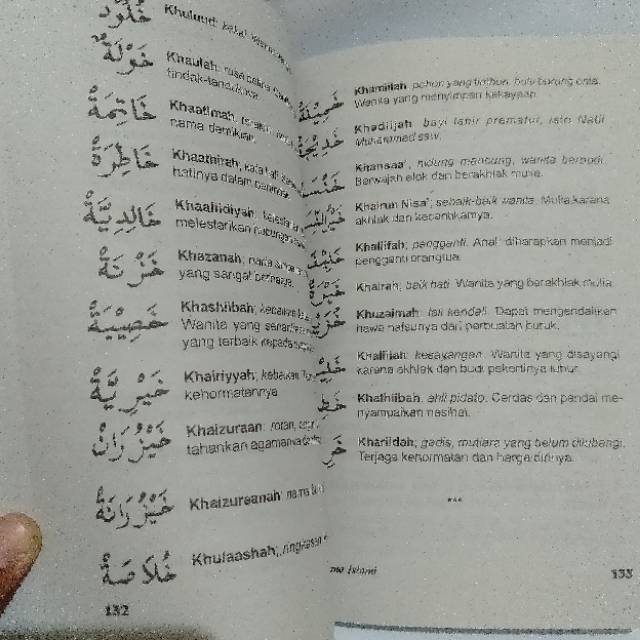 خُلُوْدٌ Khuluud; kekal
خَوْلَةٌ Khaulah;
tindak-tanduknya
خَاتِمَةٌ Khaatimah,
nama demikian
خَاطِرَةٌ Khaathirah;
hatinya dalam
خَالِدِيَّةٌ Khaalidiyah;
melestarikan
خَزْنَةٌ Khazanah;
yang sangat berharga.
خَصِيْبَةٌ Khashiibah;
Wanita yang
yang terbaik kepada
خَيْرِيَّةٌ Khairiyyah; kebaikan
kehormatannya
خَيْزُرَانٌ Khaizuraan; rotan,
tahankan agamanya
خَيْزُرَانَةٌ Khaizuraanah;
خُلَاصَةٌ Khulaashah; ringkasan
132
Khamiilah; pohon yang rimbun, bulu burung onta.
Wanita yang menyimpan kekayaan.
Khadiijah; bayi lahir prematur, istri Nabi
Muhammad saw.
Khansaa'; hidung mancung, wanita berbudi.
Berwajah elok dan berakhlak mulia.
Khairun Nisa'; sebaik-baik wanita. Mulia karena
akhlak dan kecantikannya.
Khaliifah; pengganti. Anak diharapkan menjadi
pengganti orangtua.
Khairah; baik hati. Wanita yang berakhlak mulia.
Khuzaimah; tali kendali. Dapat mengendalikan
hawa nafsunya dari perbuatan buruk.
Khaliilah; kesayangan. Wanita yang disayangi
karena akhlak dan budi pekertinya luhur.
Khathiibah; ahli pidato. Cerdas dan pandai me-
nyampaikan nasihat.
Khariidah; gadis, mutiara yang belum dilubangi.
Terjaga kehormatan dan harga dirinya.
***
Islami
133